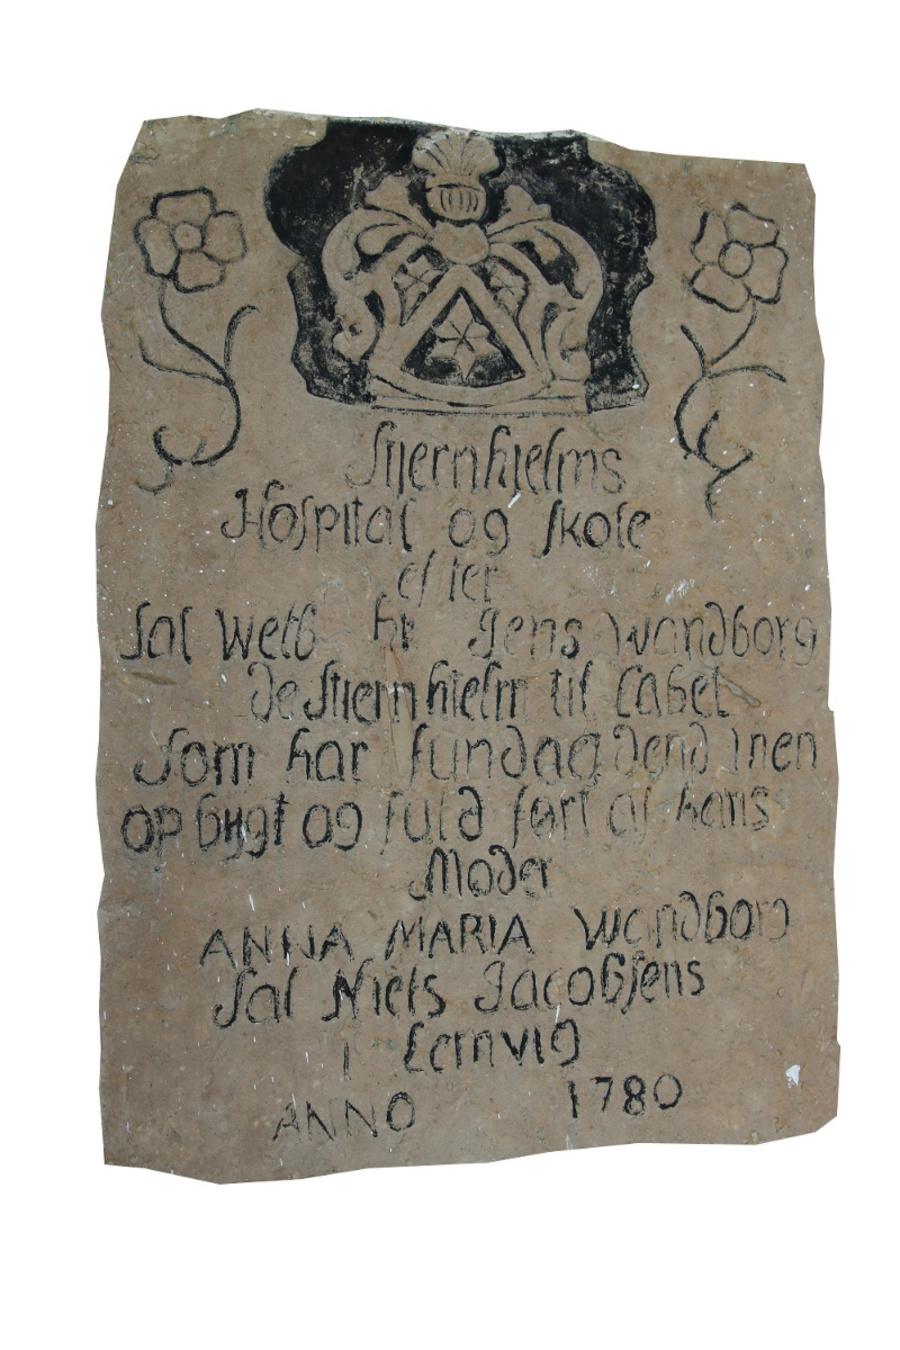 Stiernhielms
Hospital og skole
efter
Sal Welb hr Jens Wandborg
De Stiernhielm til Cabel
Som har fundag dend Inen
opbygt og fuld ført af hans
Moder
ANNA MARIA Wandborg
Sal Niels Jacobsens
i Lemvig
ANNO 1780